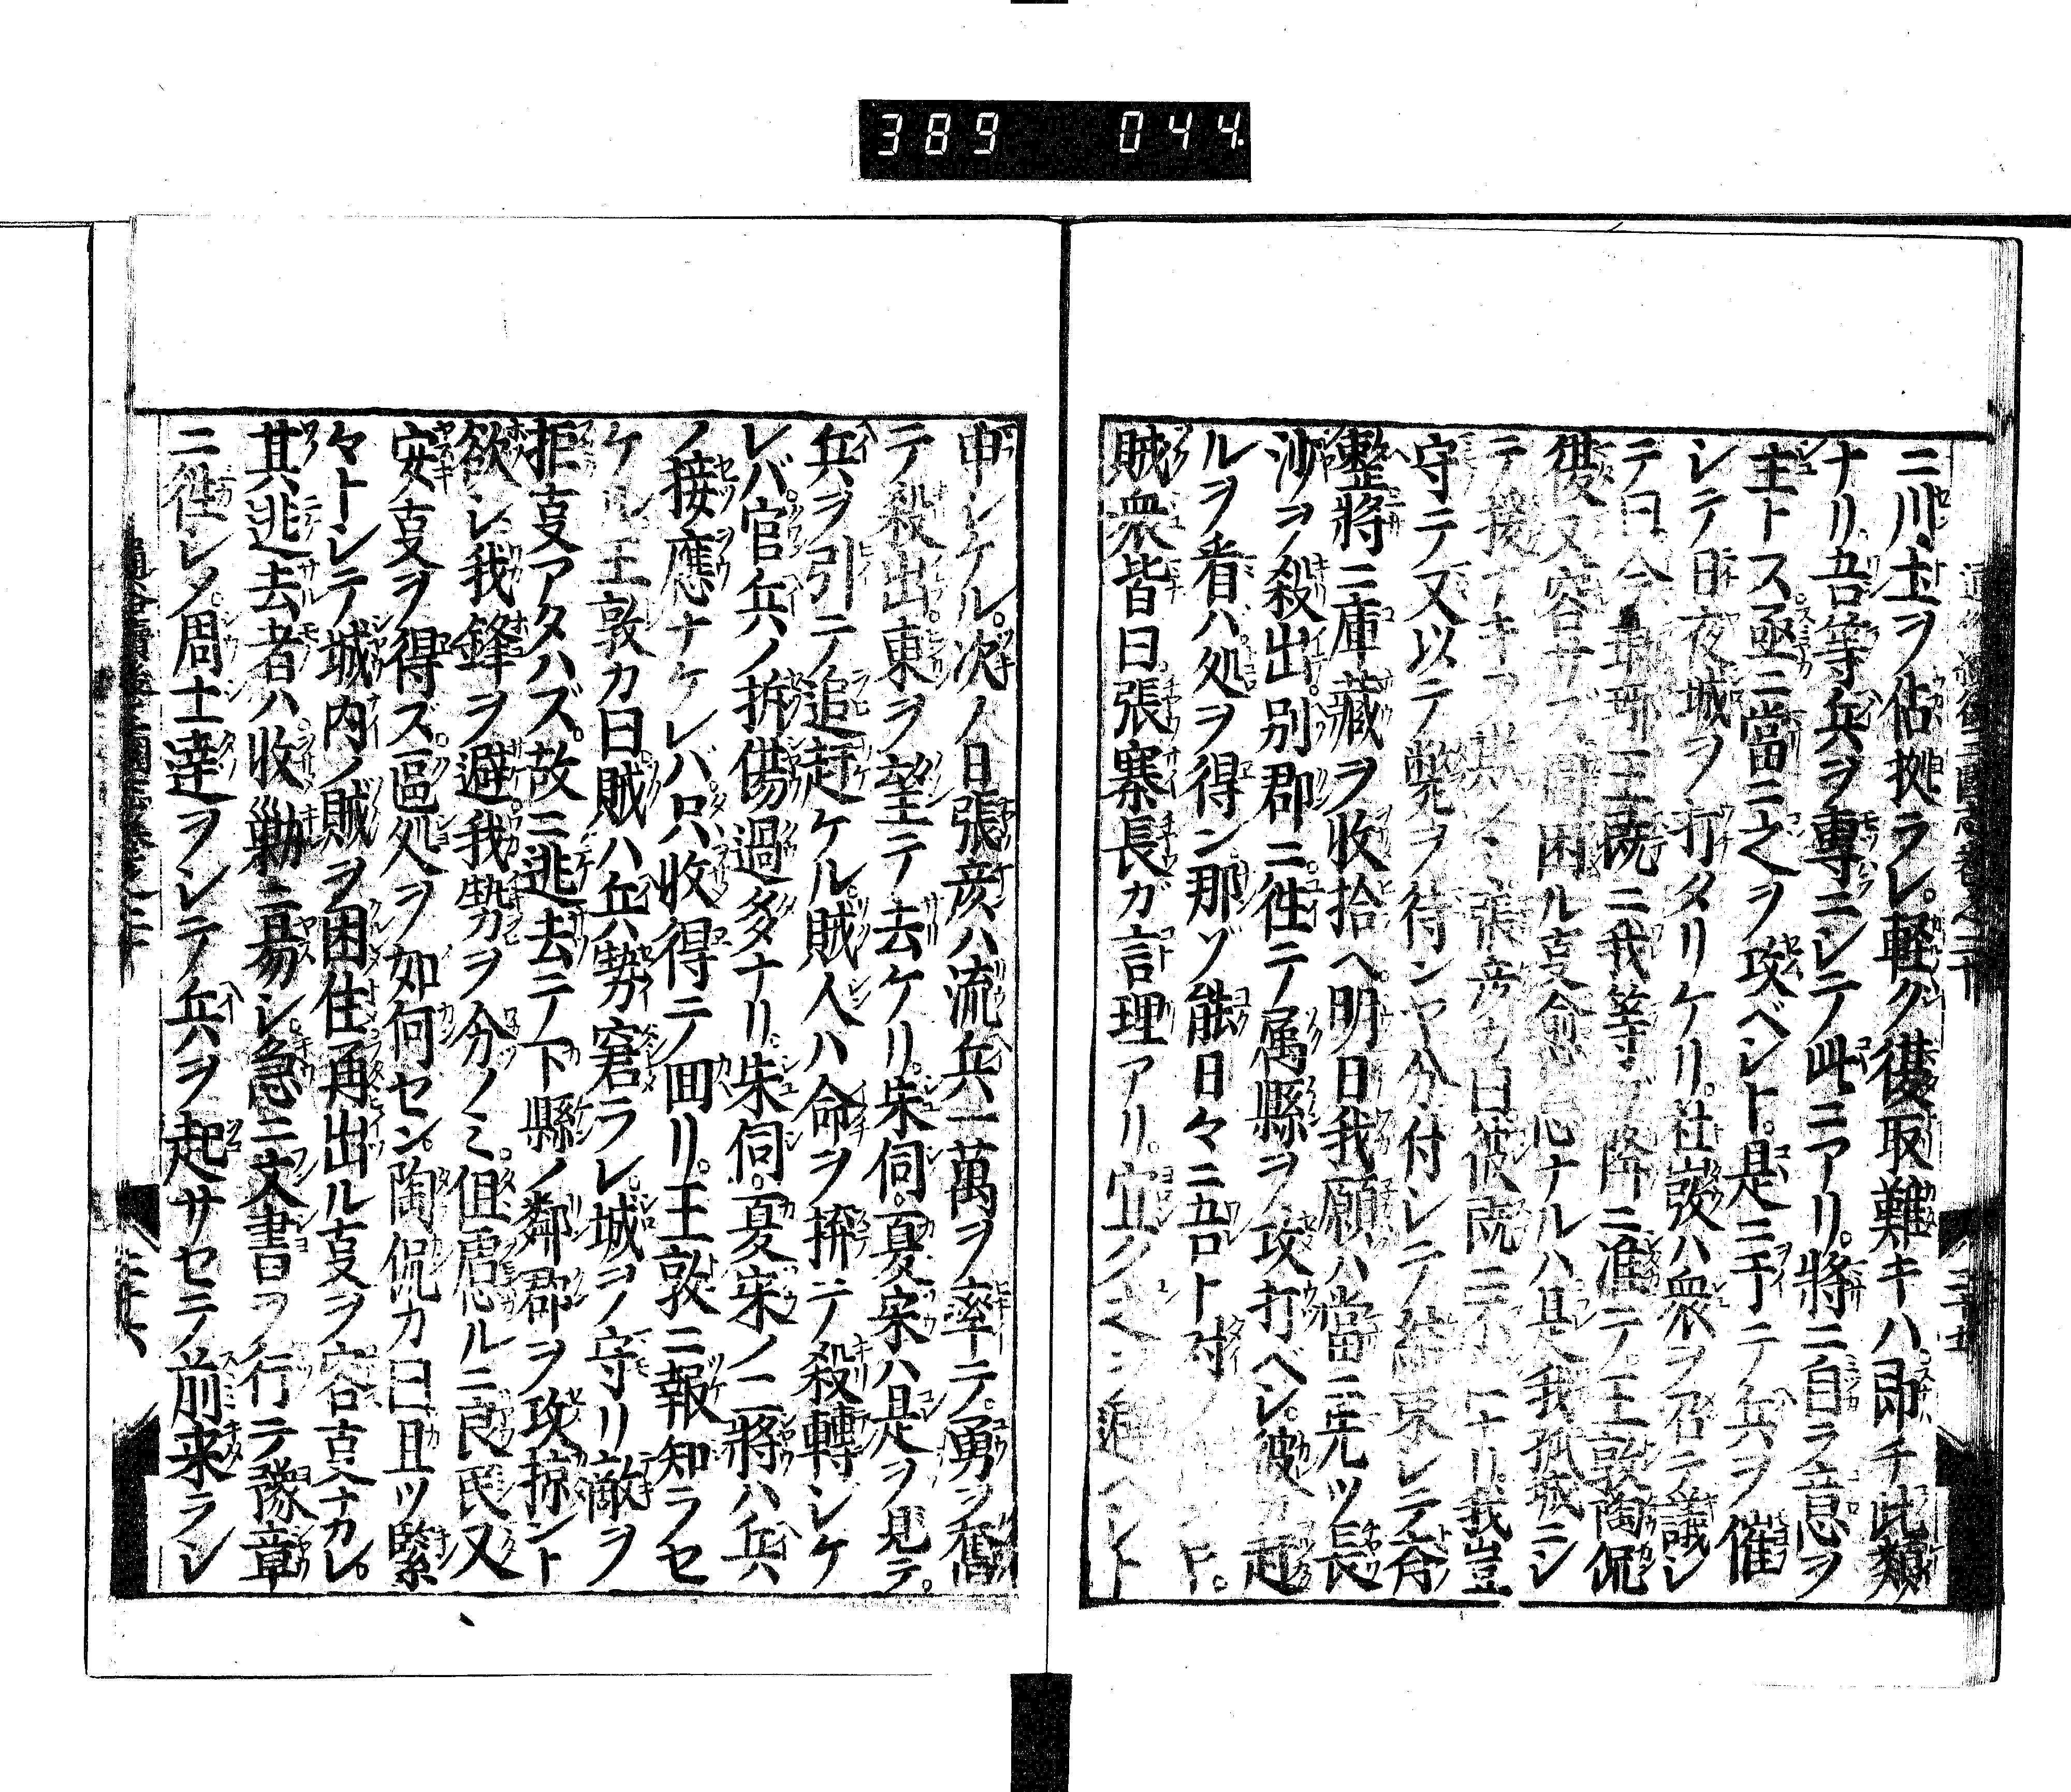 389 044
ニ川土ヲ佔拠ラレ。軽ク復取難キハ即チ此類
ナリ吾等兵ヲ專ニシテ此ニアリ。將ニ自ラ意ヲ
主トス亟ニ當ニ之ヲ攻ベシト。是ニ于テ兵ヲ催
シテ日夜城ヲ打タリケリ。杜弢ハ衆ヲ召テ議シ
テ曰今瑯琊王既ニ我等ガ降ニ准テ。王敦陶侃
復又容サズ困ル叓愈
テ援ナキヲ欺ク張彦カ曰彼既ニ不我豈
守テ又以テ斃ヲ待ンヤ分付シテ結束レテ斉
整將ニ庫藏ヲ收拾ヘ。明日我願ハ當ニ先ツ長
沙ヲ殺出。別郡ニ徃テ属縣ヲ攻打ベシ。彼カ赶
ルヲ者バ処ヲ得ン那ゾ能日々ニ吾ト对
賊衆皆曰張寨長ガ言理アリ。宜ク
申シケル。次ノ日張彦ハ流兵一萬ヲ率テ。勇ヲ奮
テ殺出。東ヲ望テ去ケリ。朱伺。夏宋ハ是ヲ見テ。
兵ヲ引テ追赶ケル。賊人ハ命ヲ捹テ殺轉シケ
レバ官兵ノ折傷過多ナリ。朱伺。夏宋ノ二將ハ兵
ノ接應ナケレバ。只收得テ囬リ。王敦ニ報知ラセ
ケル王敦カ曰賊ハ兵勢窘ラレ。城ヲ守リ敵ヲ
拒叓アタハズ。故ニ逃去テ下縣ノ鄰郡ヲ攻掠ント
欲シ我鋒ヲ避我勢ヲ分ノミ。但慮ルニ良民又
安叓ヲ得ズ。區処ヲ如何セン。陶侃カ曰且ツ緊
々トシテ城内ノ賊ヲ困住再出ル叓ヲ容叓ナカレ。
其逃去者ハ收勦ニ易シ。急ニ文書ヲ行テ豫章
ニ徃シメ。周士達ヲシテ兵ヲ起サセテ前来ラシ